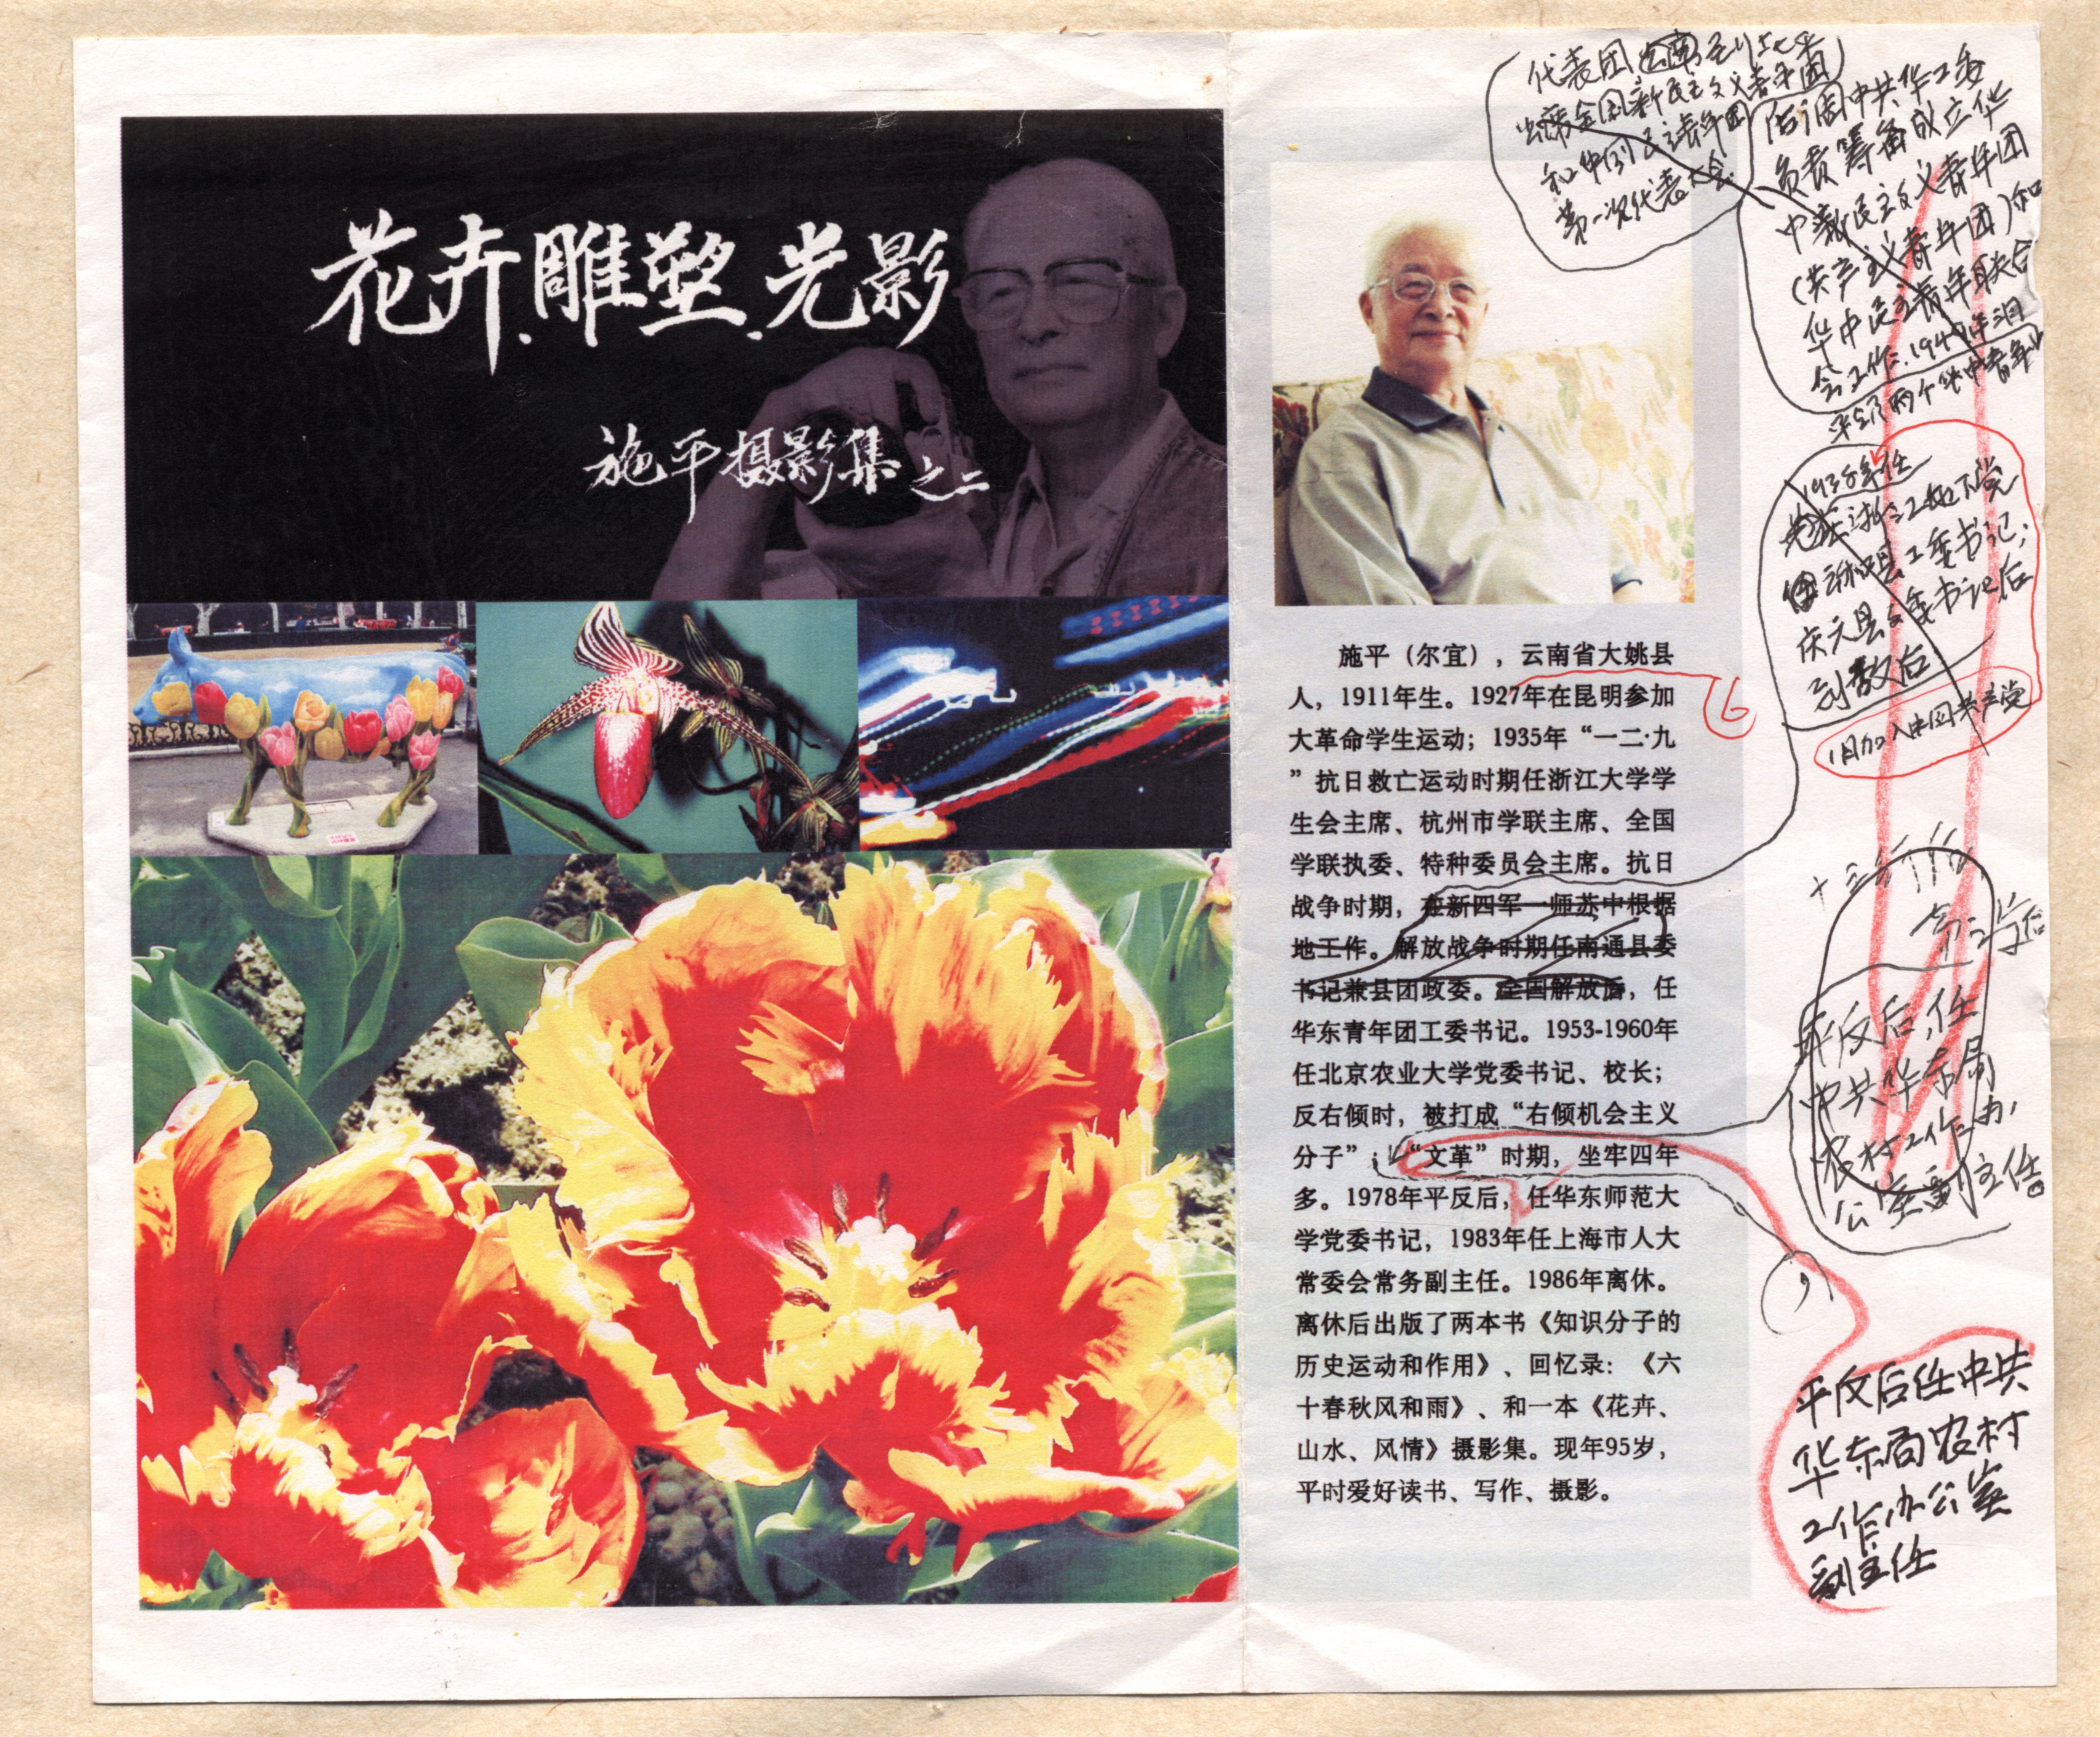 花卉.雕塑.光影
施平摄影集之二
施平（尔宜），云南省大姚县
人，1911年生。1927年在昆明参加
大革命学生运动；1935年“一二·九
”抗日救亡运动时期任浙江大学学
生会主席、杭州市学联主席、全国
学联执委、特种委员会主席。抗日
战争时期，在新四军一师苏中根据
地工作。解放战争时期任南通县委
书记兼县团政委。全国解放后，任
华东青年团工委书记。1953-1960年
任北京农业大学党委书记、校长；
反右倾时，被打成“右倾机会主义
分子”；“文革”时期，坐牢四年
多。1978年平反后，任华东师范大
学党委书记，1983年任上海市人大
常委会常务副主任。1986年离休。
离休后出版了两本书《知识分子的
历史运动和作用》、回忆录：《六
十春秋风和雨》、和一本《花卉、
山水、风情》摄影集。现年95岁，
平时爱好读书、写作、摄影。
代表团
出席全国新民主主义青年团
第一次代表大会
后调中共华工委
负责筹备成立华
中新民主主义青年团
（共产主义青年团）和
华中民主青年联合
会工作.
1938年任
县工委书记；
庆元县委书记后
到敌后
1月加入中国共产党
6
平反后，任
中共华东局
农村工作办
公室副主任
，
平反后任中共
华东局农村
工作办公室
副主任